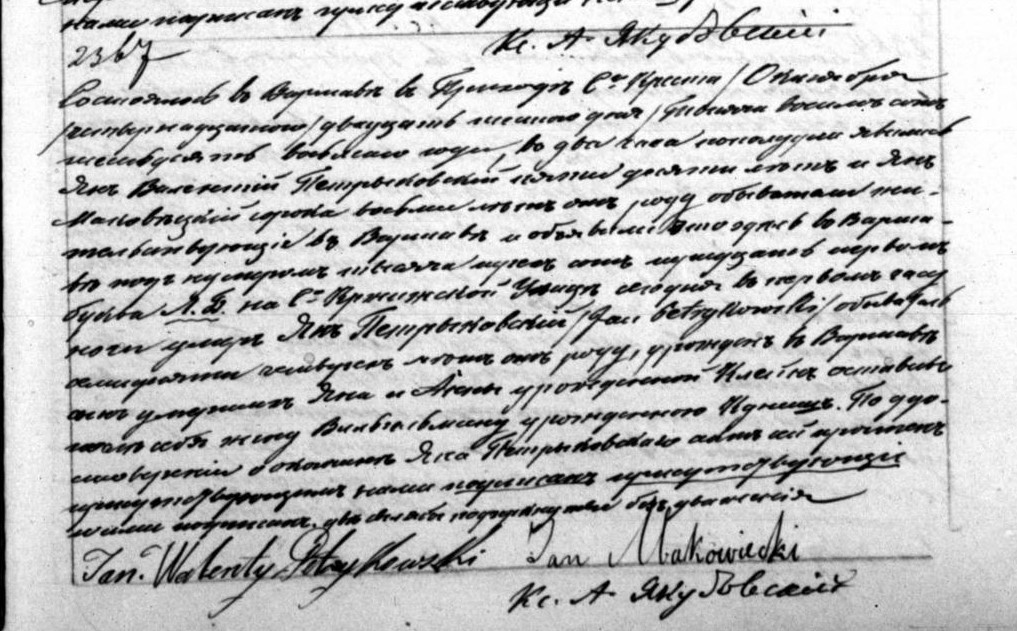 нами подписанъ
Кс. А Якубовскій
2367
Состоялось въ Варшавѣ въ Приходѣ Св. Креста / Октября
/четырнадцатого/ двадцать шестого дня / тысяча восемь сотъ
шестьдесятъ восьмаго года, въ два часа пополудни явились
Янъ Валентій Петрыковскій пяти десяти лѣтъ и Янъ
Маковѣцкій сорока восьми лѣтъ отъ роду обыватели жи-
тельствующіе въ Варшавѣ и объявили что здѣсь въ Варша-
вѣ подъ нумеромъ тысяча сотъ первымъ
буква Л. Б. на Св. Кржижской Улицѣ сегодня въ первомъ часу
ночи умеръ Янъ Петрыковскій /Jan Petrykowski/ обыватель
лѣтъ отъ роду, урожденъ въ Варшавѣ
сынъ умершихъ Яна и Анны урожденной оставивъ
послѣ себя жену Вильгельмину урожденную По удо-
стовѣреніи о кончинѣ Яна Петрыковскаго актъ сей прочтенъ
присутствующимъ нами подписанъ присутствующіе
нами подписанъ. два слова подчеркнутые безъ уваженія
Jan. Walenty Petrykowski Jan Makowiecki
Кс. А Якубовскій